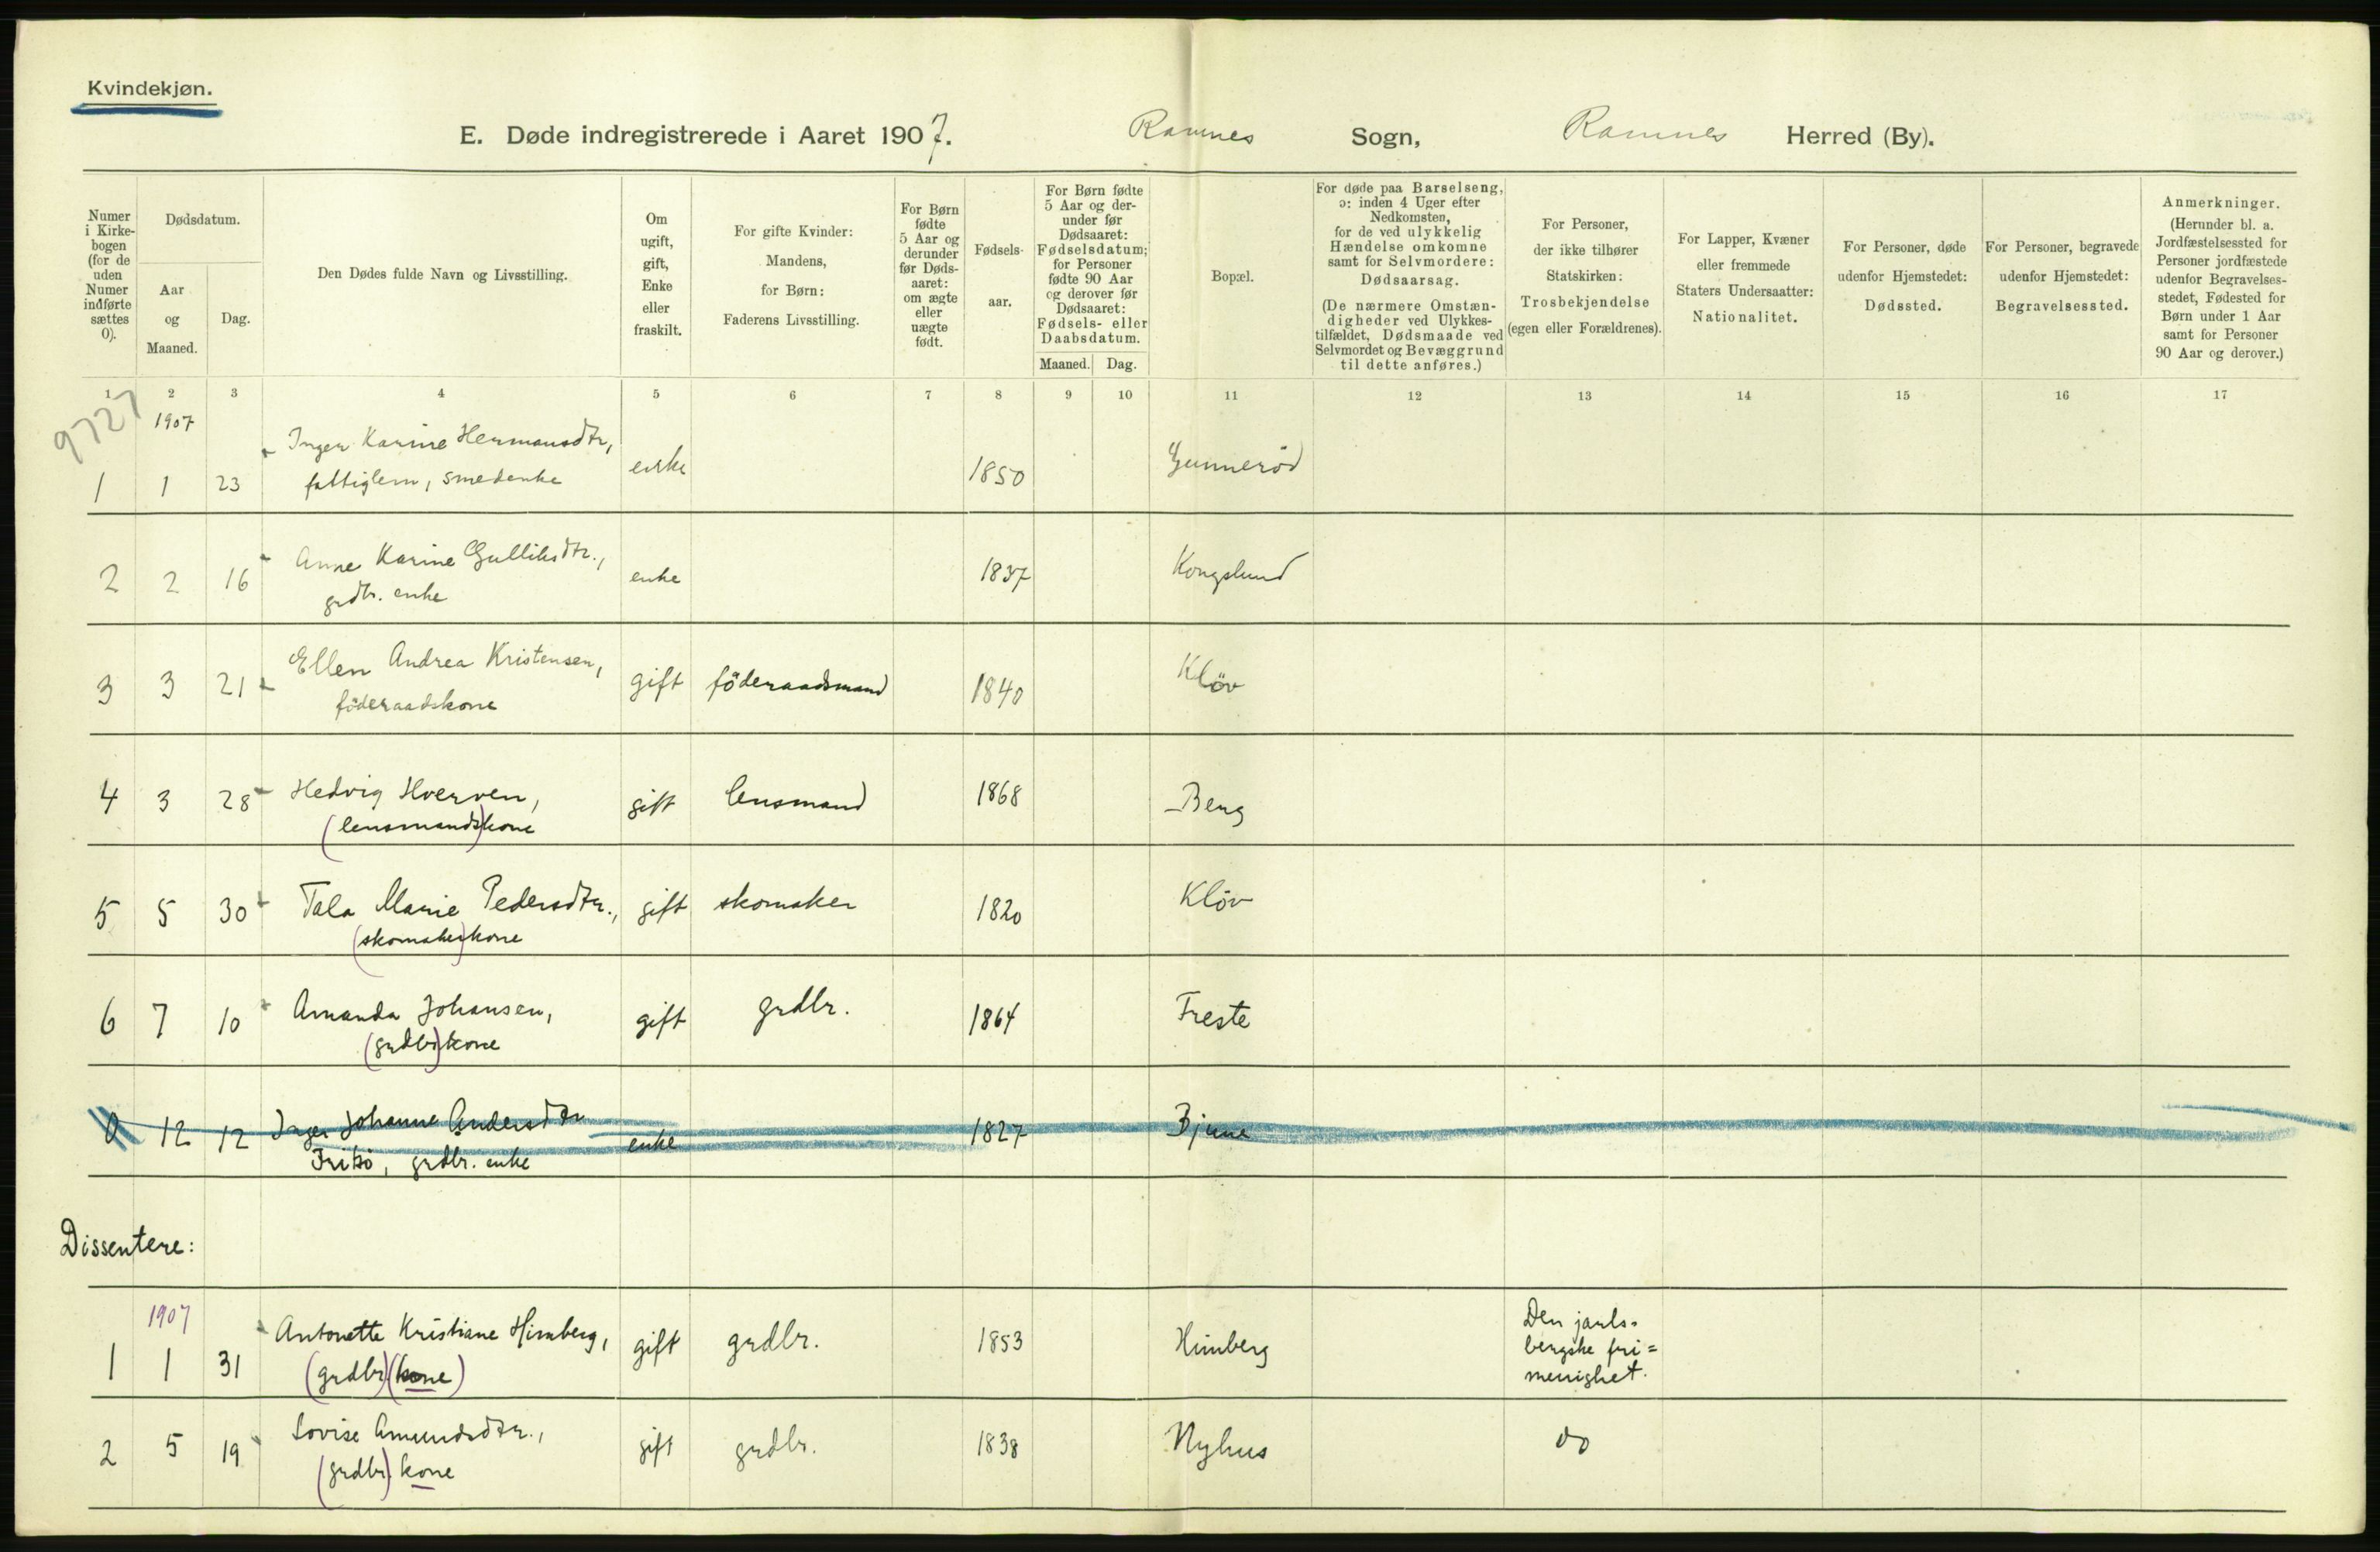 Kvindekjøn.
E. Døde indregistrerede i Aaret 1907. Ramnes Sogn, Ramnes Herred (By).
Numer
i Kirke-
bogen
(for de
uden
Numer
indførte
sættes
0).
Dødsdatum.
Aar
og
Maaned.
Dag.
Den Dødes fulde Navn og Livsstilling.
Om
ugift,
gift,
Enke
eller
fraskilt.
For gifte Kvinder:
Mandens,
for Børn:
Faderens Livsstilling.
For Børn
fødte
5 Aar og
derunder
før Døds-
aaret:
om ægte
eller
uægte
født.
Fødsels-
aar.
For Børn fødte
5 Aar og der-
under før
Dødsaaret:
Fødselsdatum;
for Personer
fødte 90 Aar
og derover før
Dødsaaret:
Fødsels- eller
Daabsdatum.
Maaned. Dag.
Bopæl.
For døde paa Barselseng,
ɔ: inden 4 Uger efter
Nedkomsten,
for de ved ulykkelig
Hændelse omkomne
samt for Selvmordere:
Dødsaarsag.
(De nærmere Omstæn-
digheder ved Ulykkes-
tilfældet, Dødsmaade ved
Selvmordet og Bevæggrund
til dette anføres.)
For Personer,
der ikke tilhører
Statskirken:
Trosbekjendelse
(egen eller Forældrenes).
For Lapper, Kvæner
eller fremmede
Staters Undersaatter:
Nationalitet.
For Personer, døde
udenfor Hjemstedet:
Dødssted.
For Personer, begravede
udenfor Hjemstedet:
Begravelsessted.
Anmerkninger.
(Herunder bl. a.
Jordfæstelsessted for
Personer jordfæstede
udenfor Begravelses-
stedet, Fødested for
Børn under 1 Aar
samt for Personer
90 Aar og derover.)
1 2 3 4 5 6 7 8 9 10 11 12 13 14 15 16 17
9727
1907
Inger Karine Hermansdtr,
1 1 23 fattiglem, smedenke enke 1850 Gunnerød
Anne Karine Gulliksdtr.,
2 2 16 grdbr. enke enke 1837 Kongslund
Ellen Andrea Kristensen,
3 3 21 föderaadskone gift föderaadsmand 1840 Klöv
4 3 28 Hedvig Hverven, gift lensmand 1868 Berg
(lensmands)kone
5 5 30 Tala Marie Pedersdtr., gift skomaker 1820 Klöv
(skomaker)kone
6 7 10 Amanda Johansen, gift grdbr. 1864 Freste
(grdbr)kone
0 12 12 Inger Johanne Andersdtr enke 1827 Bjune
grdbr. enke
Dissentere:
1907
Antonette Kristiane Himberg,
1 1 31 (grdbr)(kone) gift grdbr. 1853 Himberg
Den jarls=
bergske fri=
menighet.
2 5 19 Lovise Amundsdtr., gift grdbr. 1838 Nyhus do
(grdbr) kone